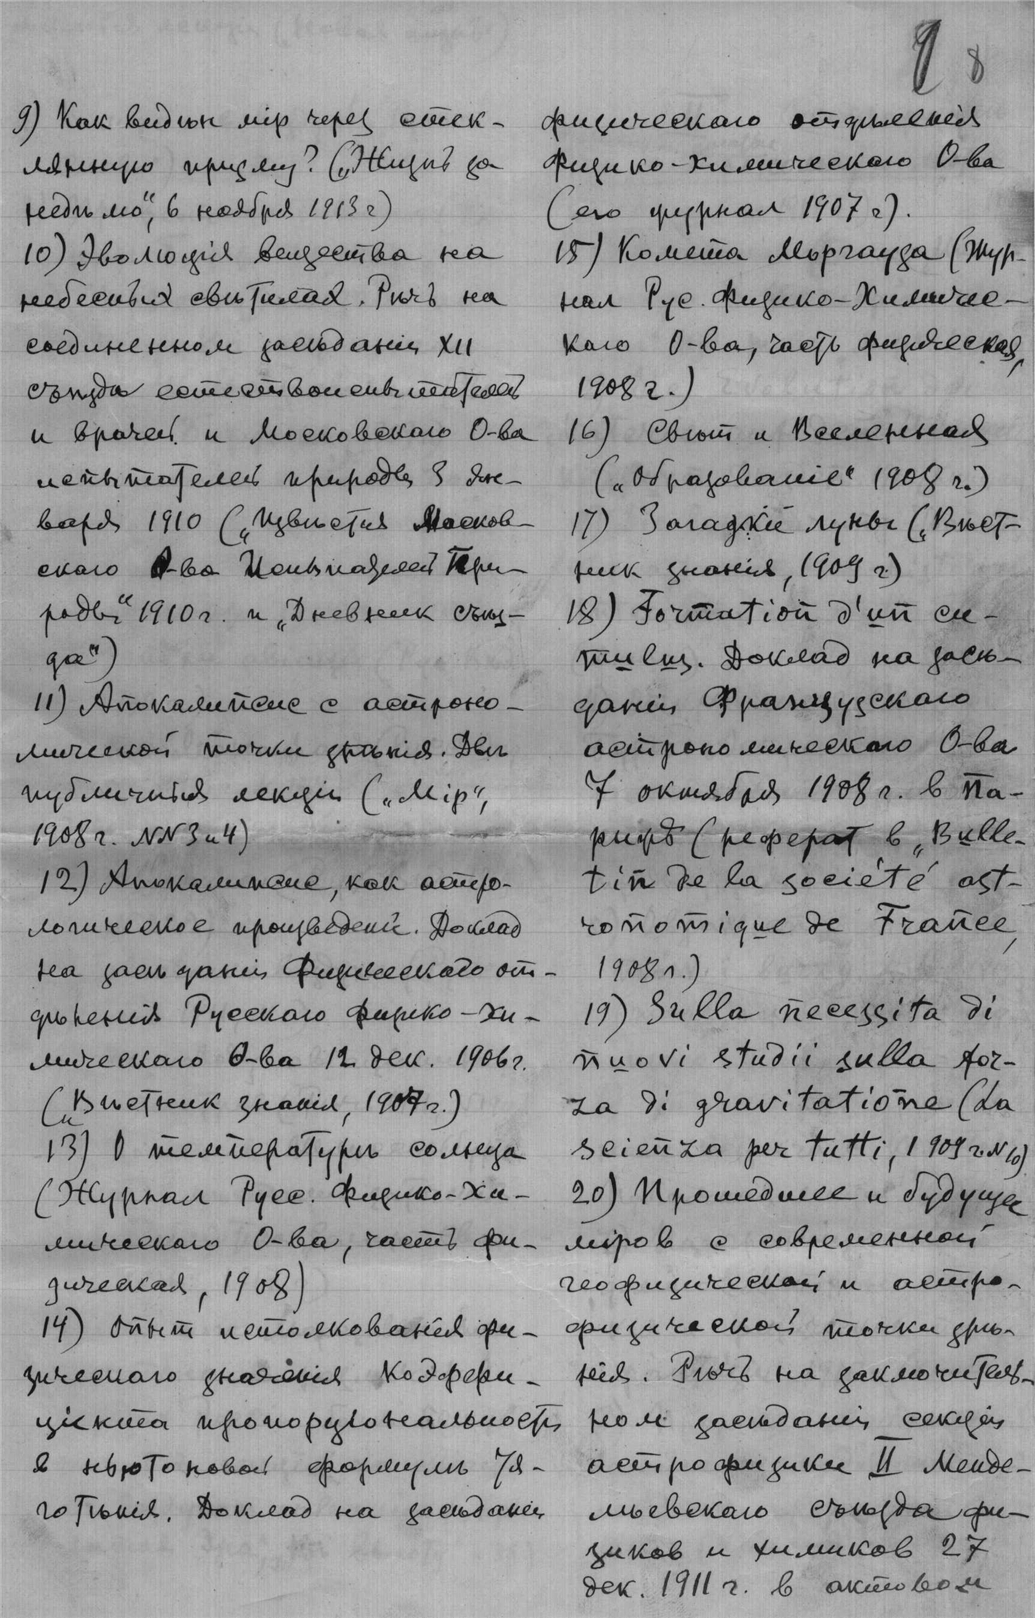 9 8
9) Как видѣн мір через стек-
лянную призму? („Жизнь за
недѣлю“, 6 ноября 1913 г)
10) Эволюція вещества на
небесных свѣтилах. Рѣчь на
соединенном засѣданіи XII
съѣзда естествоиспытателей
и врачей и Московскаго О-ва
испытателей природы 3 ян-
варя 1910 („Извѣстія Москов-
скаго О-ва Испытателей При-
роды“ 1910 г. и „Дневник съѣз-
да“)
11) Апокалипсис с астроно-
мической точки зрѣнія. Двѣ
публичныя лекціи („Мір“,
1908 г. NN 3 и 4)
12) Апокалипсис, как астро-
логическое произведеніе. Доклад
на засѣданіи Физическаго от-
дѣленія Русскаго Физико-Хи-
мическаго О-ва 12 дек. 1906 г.
(„Вѣстник знанія, 1907 г.)
13) О температурѣ солнца
(Журнал Русс. Физико-Хи-
мическаго О-ва, часть фи-
зическая, 1908)
14) Опыт истолкованія фи-
зическаго значенія коэффи-
ціента пропорціональности
в ньютоновой формулѣ тя-
готѣнія. Доклад на засѣданіи
физическаго отдѣленія
Физико-Химическаго О-ва
(его журнал 1907 г).
15) Комета Моргауза (Жур-
нал Рус. Физико-Химичес-
каго О-ва, часть физическая,
1908 г.)
16) Свѣт и Вселенная
(„Образованіе“ 1908 г.)
17) Загадки луны („Вѣст-
ник знанія, 1909 г)
18) Formation d'un cu-
mulus. Доклад на засѣ-
даніи Французскаго
астрономическаго О-ва
7 октября 1908 г. в Па-
рижѣ (реферат в „Bulle-
tin de la société ast-
ronomique de France,
1908 г.)
19) Sulla necessita di
nuovi studii sulla for-
za di gravitatione (La
scienza per tutti, 1909 г. N 10)
20) Прошедшее и будущее
міров с современной
геофизической и астро-
физической точки зрѣ-
нія. Рѣчь на заключитель-
ном засѣданіи секціи
астрофизики II Менде-
лѣевскаго съѣзда фи-
зиков и химиков 27
дек. 1911 г. в актовом